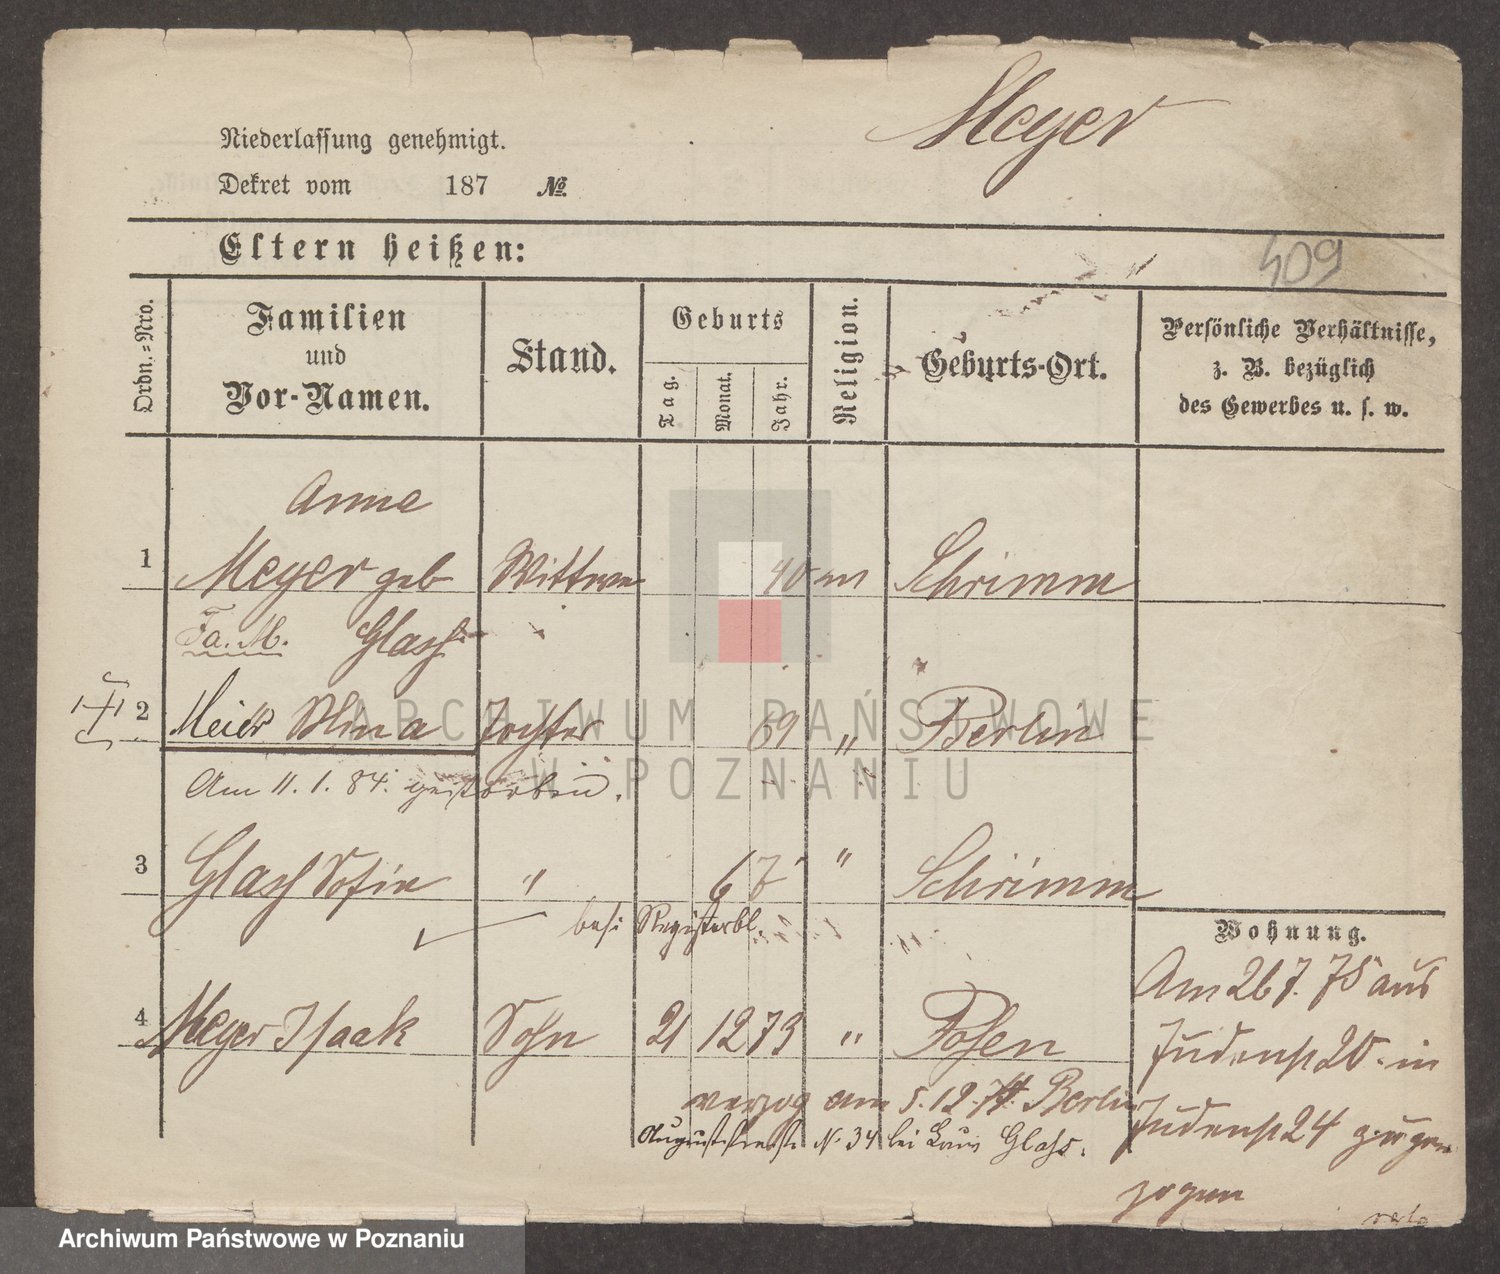 Meyer
Niederlassung genehmigt.
Dekret vom 187 №
Eltern heißen:
409
Ordn.-Nro.
Familien
und
Vor-Namen.
Stand.
Geburts
Tag.
Monat.
Jahr.
Religion.
Geburts-Ort.
Persönliche Verhältnisse,
z. B. bezüglich
des Gewerbes u. s. w.
Anna
1 Meyer geb Wittwe 40 m Schrimm
Fa. M. Glass
2 Meier Mina Tochter 69 " Berlin
Am 11. 1. 84. gestorben.
3 Glass Sofie " 67 " Schrimm
bes: Registerbl.
Wohnung.
Am 26 7. 75 aus
4 Meyer Isaak Sohn 21 12 73 " Posen
Judenst 20. in
verzog am 5. 12. 74 Berlin
Judenst 24 gezogen
Auguststrasse N. 34 bei Louis Glass.
ARCHIWUM PAŃSTWOWE
W POZNANIU
Archiwum Państwowe w Poznaniu